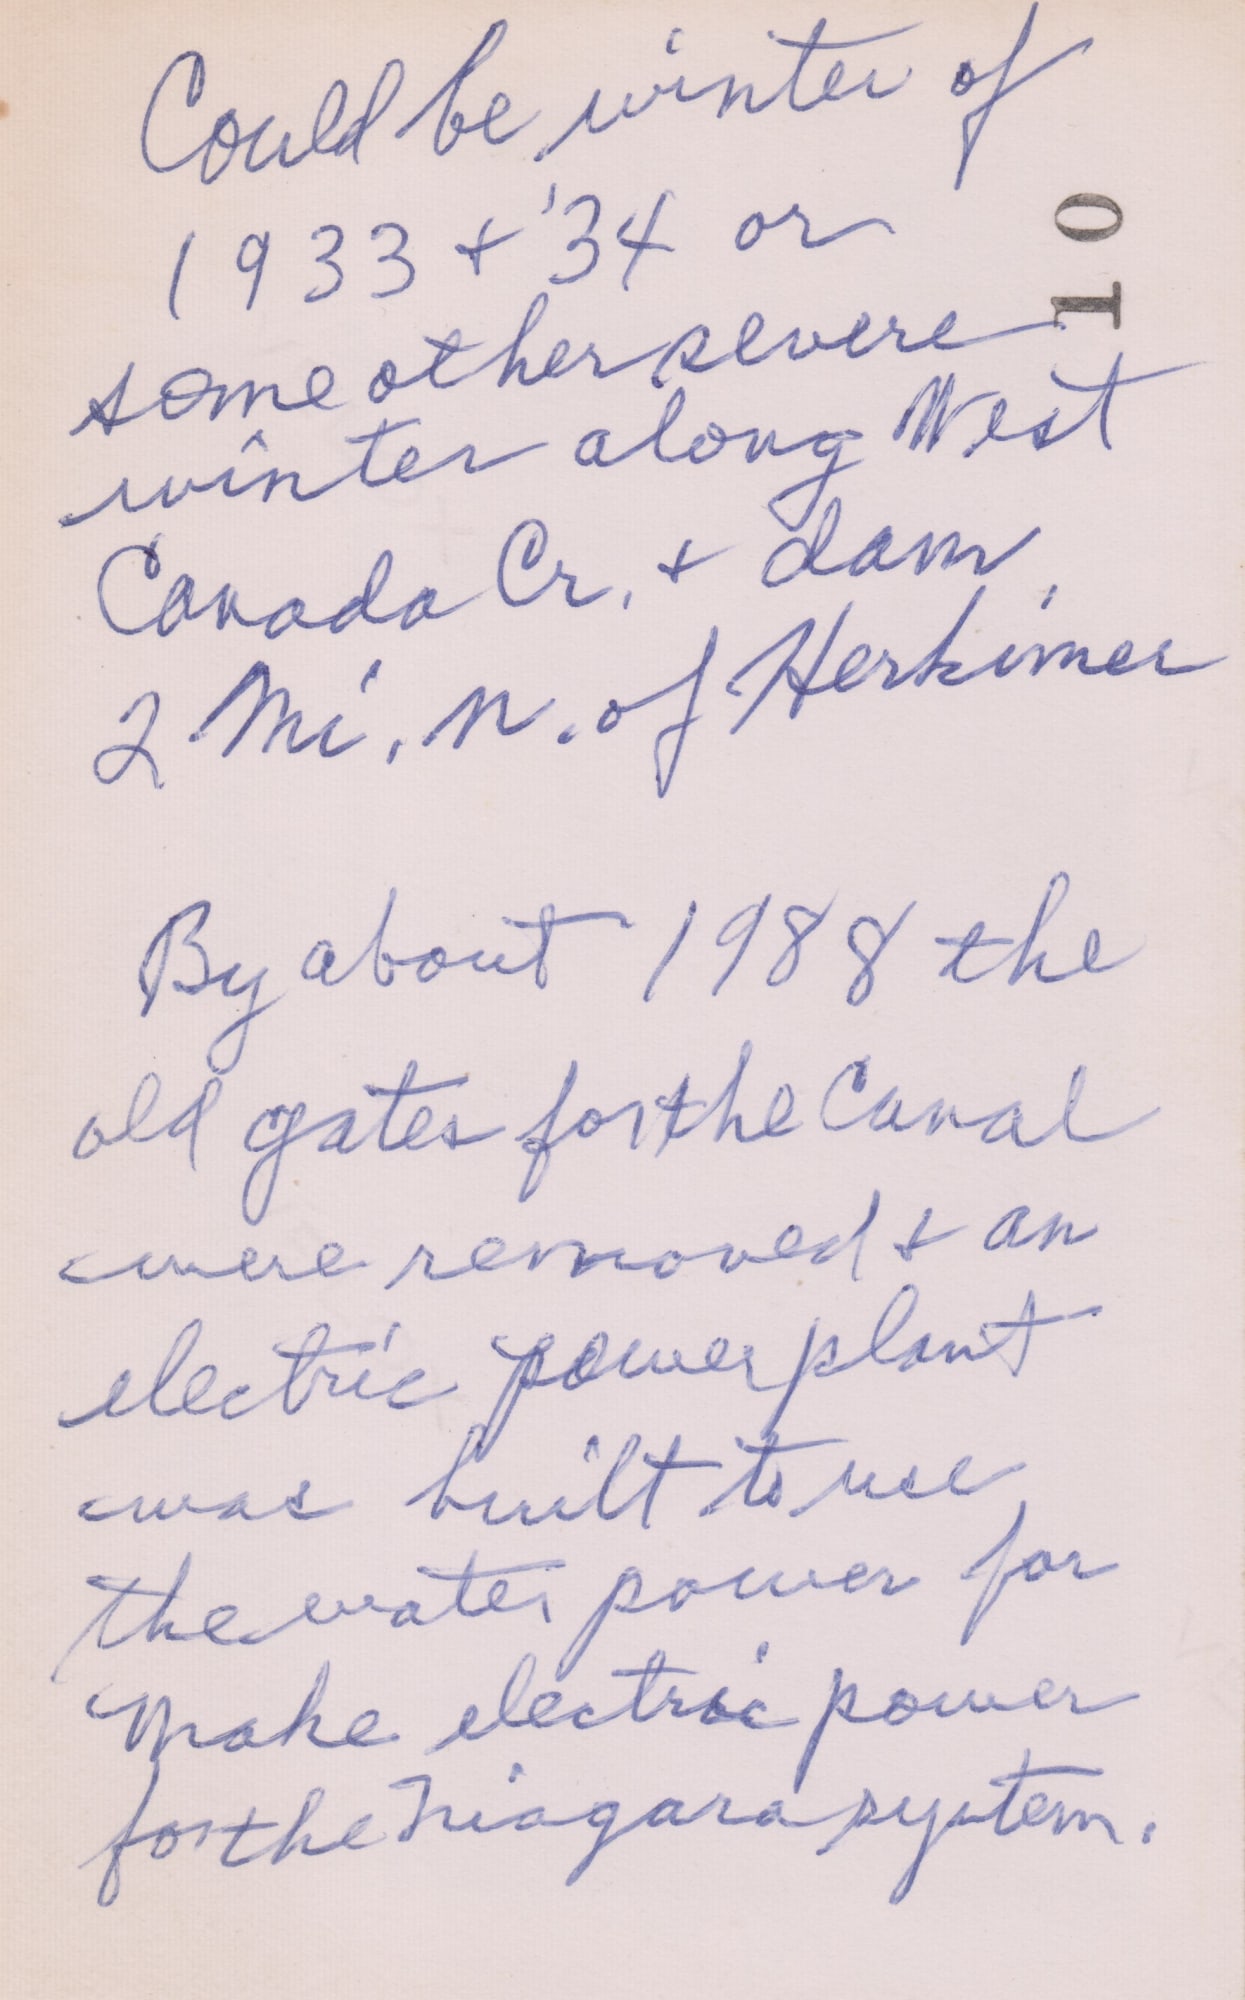 Could be winter of
1933 + '34 or
01
some other severe
winter along West
Canada Cr. + dam,
2 Mi. N. of Herkimer
By about 1988 the
old gates for the Canal
were removed + an
electric power plant
was built to use
the water power for
make electric power
for the Niagara system.